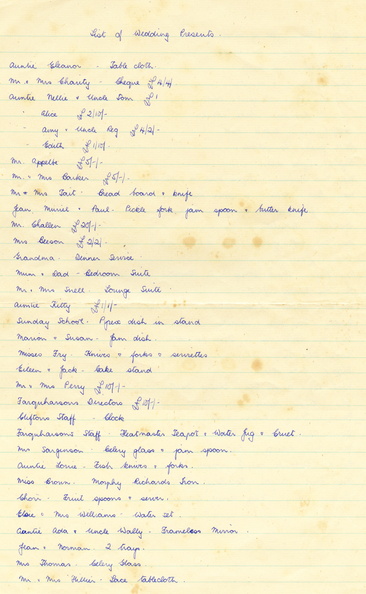 List of Wedding Presents.
Auntie Eleanor - Table cloth.
Mr & Mrs Charity - Cheque £4/4/
Auntie Nellie & Uncle Tom £1
" Alice £2/10/-
" Amy & Uncle Reg £4/2/-
" Edith £1/1/-
Mr. Appelbe £5/-/-
Mr. & Mrs Barker £5/-/-
Mr & Mrs Tait - Bread board & knife
Jean, Muriel & Paul. Pickle fork jam spoon & butter knife
Mr. Challen £25/-/-
Mrs Beeson £2/2/-
Grandma - Dinner Service
Mum & Dad - Bedroom Suite
Mr & Mrs Snell. Lounge Suite
Auntie Kitty £1/1/-
Sunday School. Pyrex dish in stand
Marion & Susan - Jam dish.
Misses Fry. Knives & forks & serviettes
Eileen & Jack - Cake stand
Mr & Mrs Perry £10/-/-
Farquharsons Directors £10/-/-
Staff - Clock
Farquharsons Staff Heatmaster Teapot & Water jug & Cruet.
Mrs Sargenson - Celery glass & jam spoon.
Auntie - Fish knives & forks.
Miss Brown. Morphy Richards Iron.
Choir - Fruit spoons & server.
& Mrs Williams - Water set.
Auntie Ada & Uncle Wally - Frameless Mirror.
Jean & Norman 2 trays.
Mrs Thomas - Celery Glass.
Mr. & Mrs Hillier - Lace tablecloth.